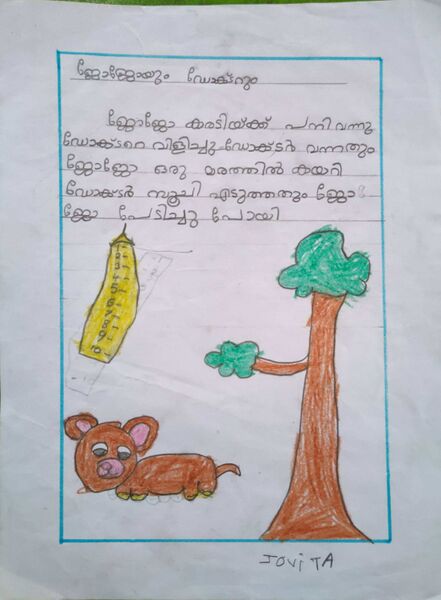 ജോജോയും ഡോക്ടറും
ജോജോ കരടിയ്ക്ക് പനി വന്നു
ഡോക്ടറെ വിളിച്ചു ഡോക്ടർ വന്നതും
ജോജോ ഒരു മരത്തിൽ കയറി
ഡോക്ടർ സൂചി എടുത്തതും ജോ
ജോ പേടിച്ചു പോയി
1
2
3
4
5
6
7
8
9
10
JOViTA